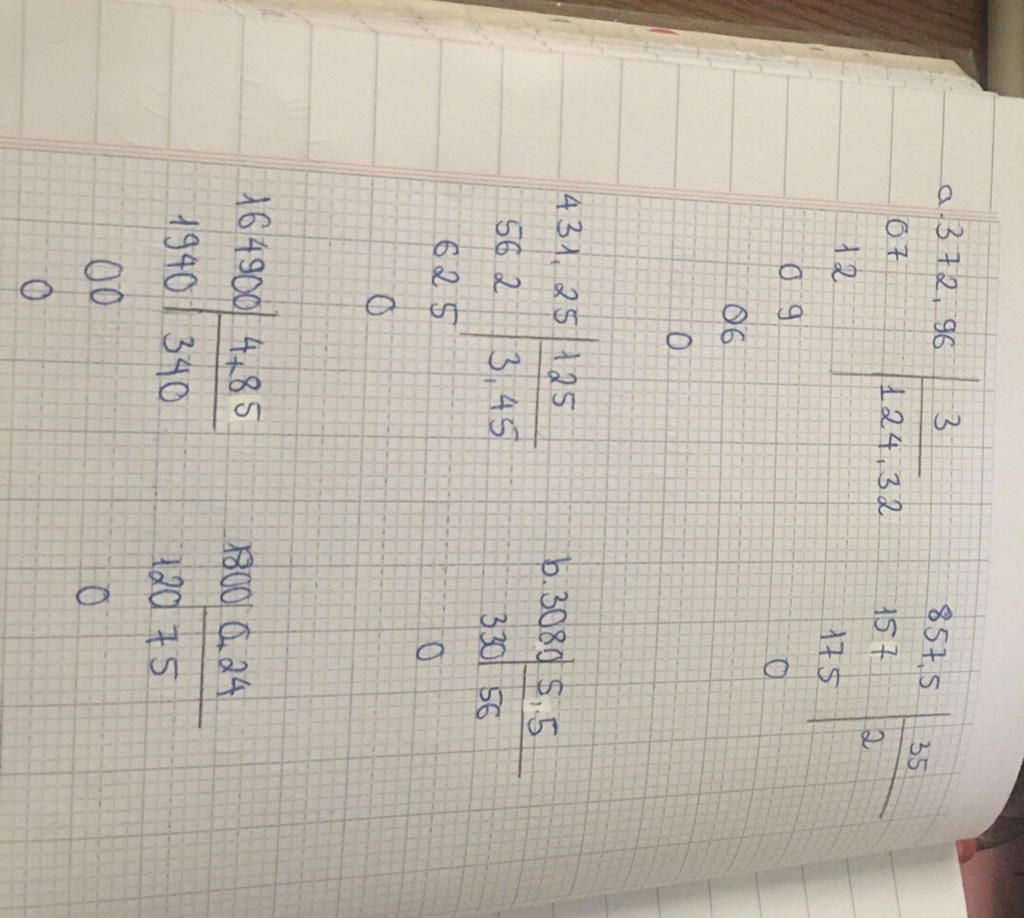 a. 372,96 3
07 124,32
12
09
06
0
857,5 35
157 2
175
0
431,25 125
562 3,45
625
0
b. 3080 5,5
330 56
0
164900 4,85
1940 340
00
0
1800 0,24
120 75
0